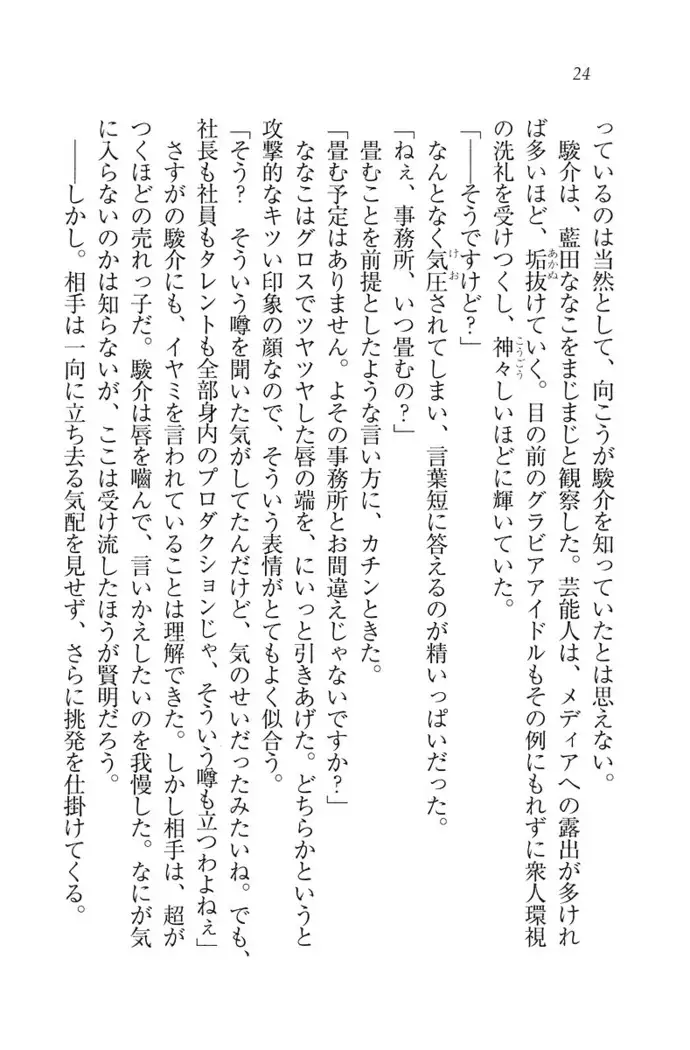 24
っているのは当然として、向こうが駿介を知っていたとは思えない。
駿介は、藍田ななこをまじまじと観察した。芸能人は、メディアへの露出が多けれ
ば多いほど、垢抜けていく。目の前のグラビアアイドルもその例にもれずに衆人環視
の洗礼を受けつくし、神々しいほどに輝いていた。
「――そうですけど?」
なんとなく気圧されてしまい、言葉短に答えるのが精いっぱいだった。
「ねぇ、事務所、いつ畳むの?」
畳むことを前提としたような言い方に、カチンときた。
「畳む予定はありません。よその事務所とお間違えじゃないですか?」
ななこはグロスでツヤツヤした唇の端を、にいっと引きあげた。どちらかというと
攻撃的なキツい印象の顔なので、そういう表情がとてもよく似合う。
「そう? そういう噂を聞いた気がしてたんだけど、気のせいだったみたいね。でも、
社長も社員もタレントも全部身内のプロダクションじゃ、そういう噂も立つわよねぇ」
さすがの駿介にも、イヤミを言われていることは理解できた。しかし相手は、超が
つくほどの売れっ子だ。駿介は唇を嚙んで、言いかえしたいのを我慢した。なにが気
に入らないのかは知らないが、ここは受け流したほうが賢明だろう。
――しかし。相手は一向に立ち去る気配を見せず、さらに挑発を仕掛けてくる。